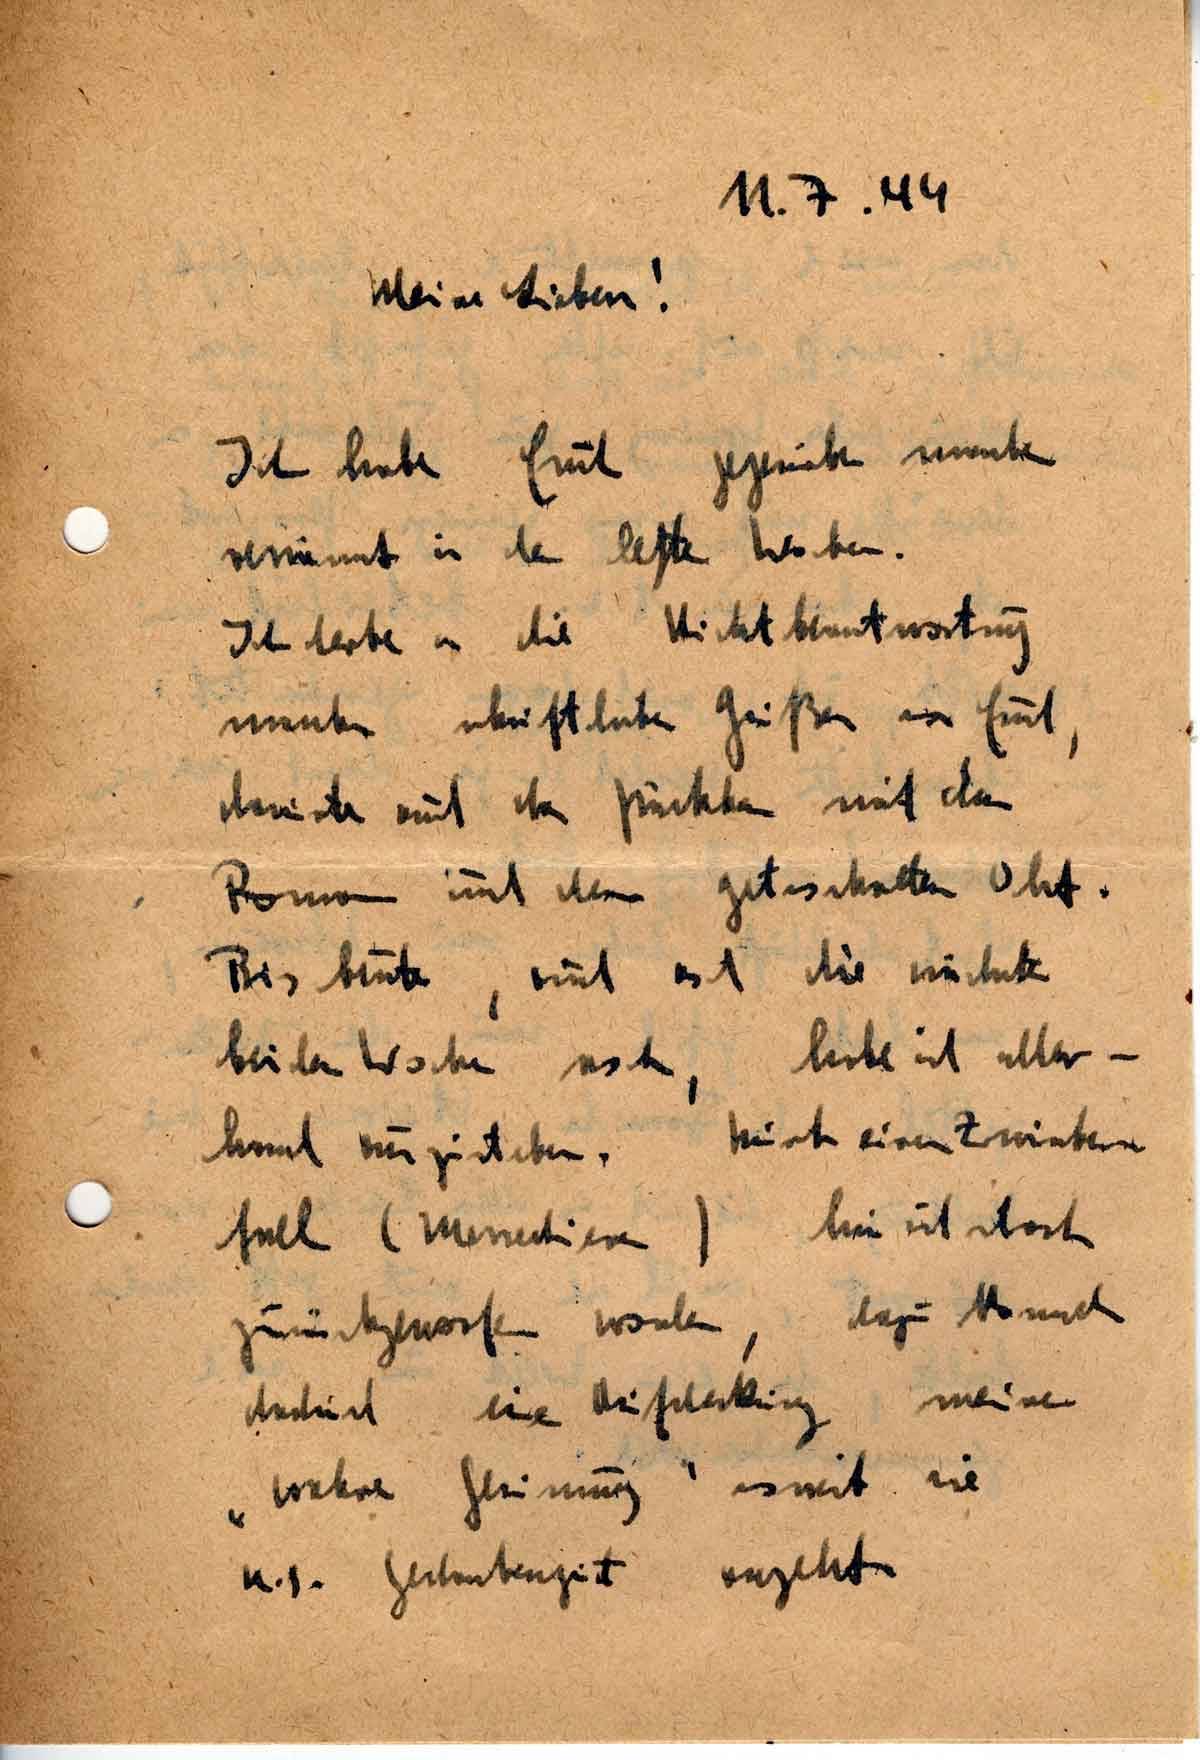 11.7.44
Meine Lieben!
Ich habe Euch gegenüber manches
versäumt in den letzten Wochen.
Ich denke an die Nichtbeantwortung
mancher schriftlicher Grüße von Euch,
dachte auch der Päckchen mit den
Roman und dem getrockneten Obst.
Bis heute, und erst die nächste
beiden Wochen noch, habe ich aller-
hand auszustehen. Durch einen Zwischen-
fall ( ) bin ich stark
zurückgeworfen worden, dazu kommt
dadurch eine Aufdeckung meiner
„wahren Gesinnung" soweit sie
n.s. Gedankengut angeht